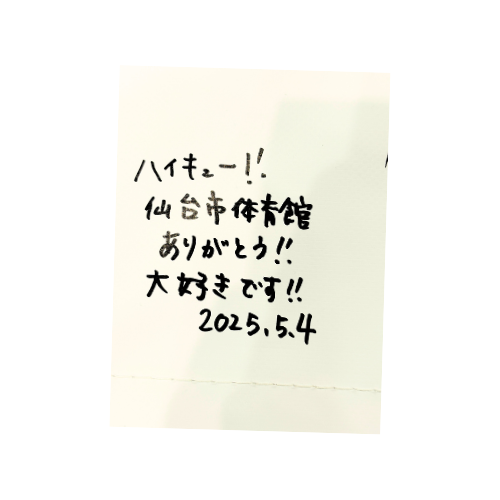 ハイキュー!!
仙台市体育館
ありがとう!!
大好きです!!
2025.5.4